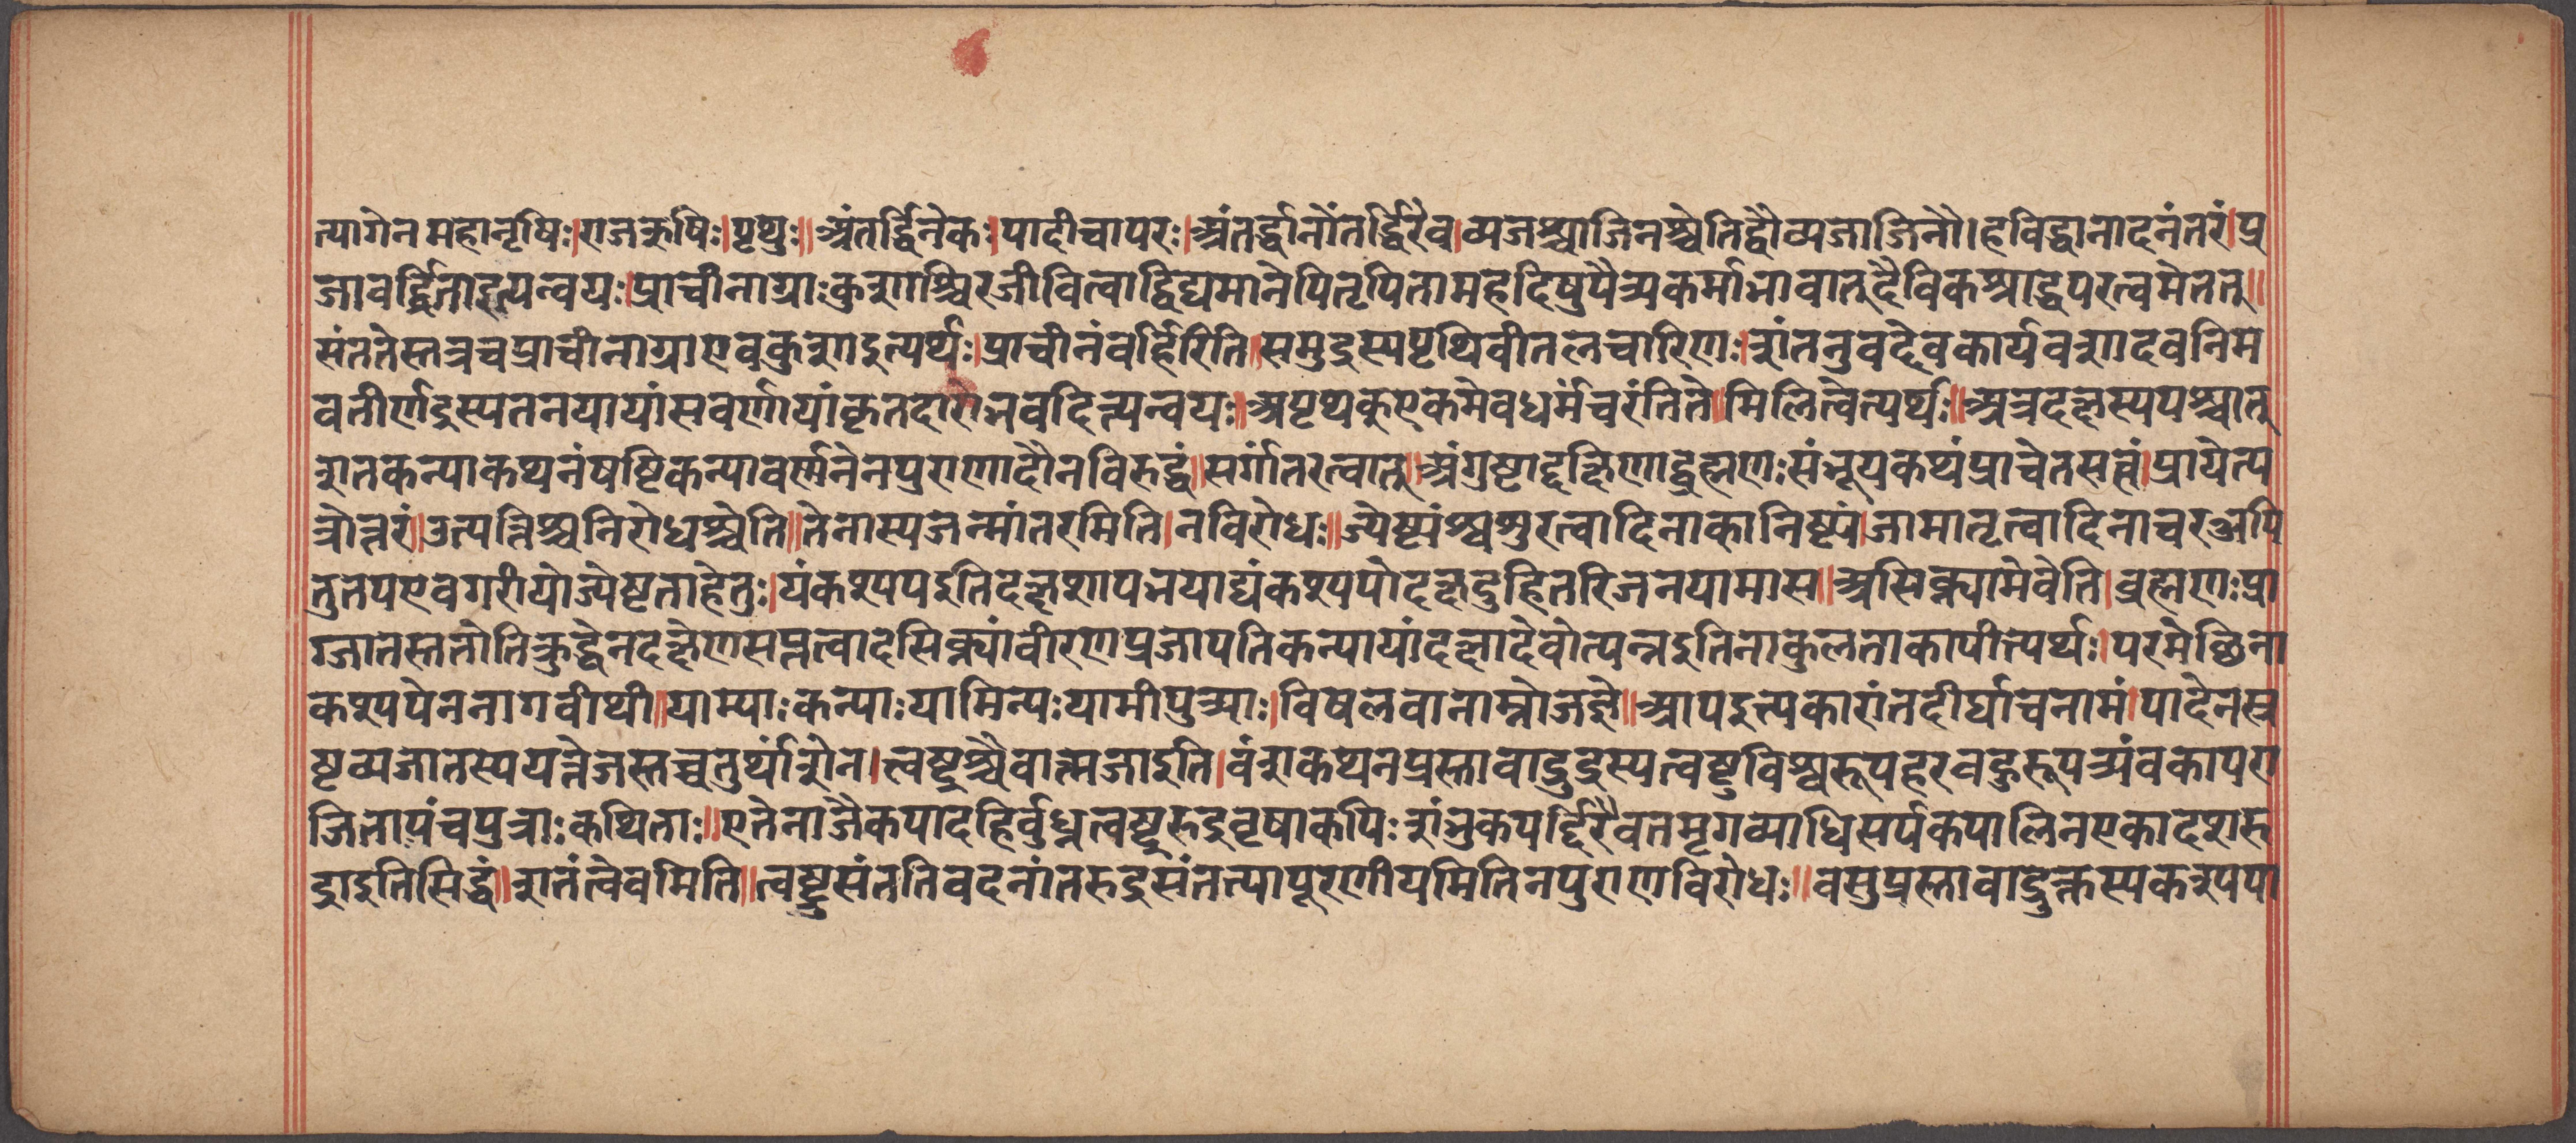 त्यागेन महानृषिः।राजऋषिः।पृथुः॥अंतर्द्धिनेकः।पादीचापरः।अंतर्द्धानोंतर्द्धिरेव।व्यजश्चाजिनश्चेतिद्वौव्यजाजिनौ।हविर्द्धानादनंतरं।प्र
जावर्द्धिताइत्यन्वयः।प्राचीनाग्राःकुशाश्चिरजीवित्वाद्विद्यमानेपितृपितामहदिषुपैत्र्यकर्माभावात्दैविकश्राद्धपरत्वमेतत्॥
संततेस्तत्रचप्राचीनाग्राएवकुशाइत्यर्थः।प्राचीनंवर्हिरिति॥समुद्रस्यपृथिवीतलचारिणः।शंतनुवद्देवकार्यवशादवनिम
वतीर्णद्रस्यतनयायांसवर्णायांकृतदारोभवदित्यन्वयः॥अपृथक्एकमेवधर्मंचरंतिते॥मिलित्वेत्यर्थः॥अत्रदक्षस्यपश्चात्
शतकन्याकथनंषष्टिकन्यावर्त्मनेनपुराणादौनविरुद्धं॥सर्गांतरत्वात्॥अंगुष्टाद्दक्षिणाद्ब्रह्मणःसंभूयकथंप्राचेतसत्वं।प्रायेत्प
त्रोत्तरं।उत्पत्तिश्चनिरोधश्चेति॥तेनास्यजन्मांतरमिति।नविरोधः॥ज्येष्ट्यंश्वशुरत्वादिनाकानिष्ट्यं।जामातृत्वादिनाचरअपि
तुतपएवगरीयोज्येष्टताहेतुः।यंकश्यपइतिदक्षशापभयाद्यंकश्यपोदक्षदुहितरिजनयामास॥असिक्न्यामेवेति।ब्रह्मणःप्रा
ग्जातस्ततोतिक्रुद्धेनदक्षेणसप्तत्वादसिक्न्यांवीरणप्रजापतिकन्यायांदक्षादेवोत्पन्नइतिनाकुलताकापीत्यर्थः।परमेष्ठिना
कश्यपेननागवीथी॥याम्याःकन्याःयामिन्यःयामीपुत्र्याः।विषलवानाम्नोजज्ञे॥आपइत्यकारांतदीर्घाचनामं।पादेनस्र
ष्टव्यजातस्ययत्तेजस्तच्चतुर्थांशेन।त्वष्टुश्चैवात्मजाइति।वंशकथनप्रस्तावाद्रुद्रस्यत्वष्टुविश्वरूपहरवहुरूपत्र्यंवकापरा
जितापंचपुत्राःकथिताः॥एतेनाजैकपादहिर्वुध्नत्वष्टृरुद्रवृषाकपिःशंभुकपर्द्दिरैवतमृगव्याधिसर्पकपालिनएकादशरु
द्राइतिसिद्धं॥शतंत्वेवमिति॥त्वष्टुसंततिवदनांतरुद्रसंतत्यापूरणीयमितिनपुराणविरोधः॥वसुप्रस्तावादुक्तस्यकश्यपा